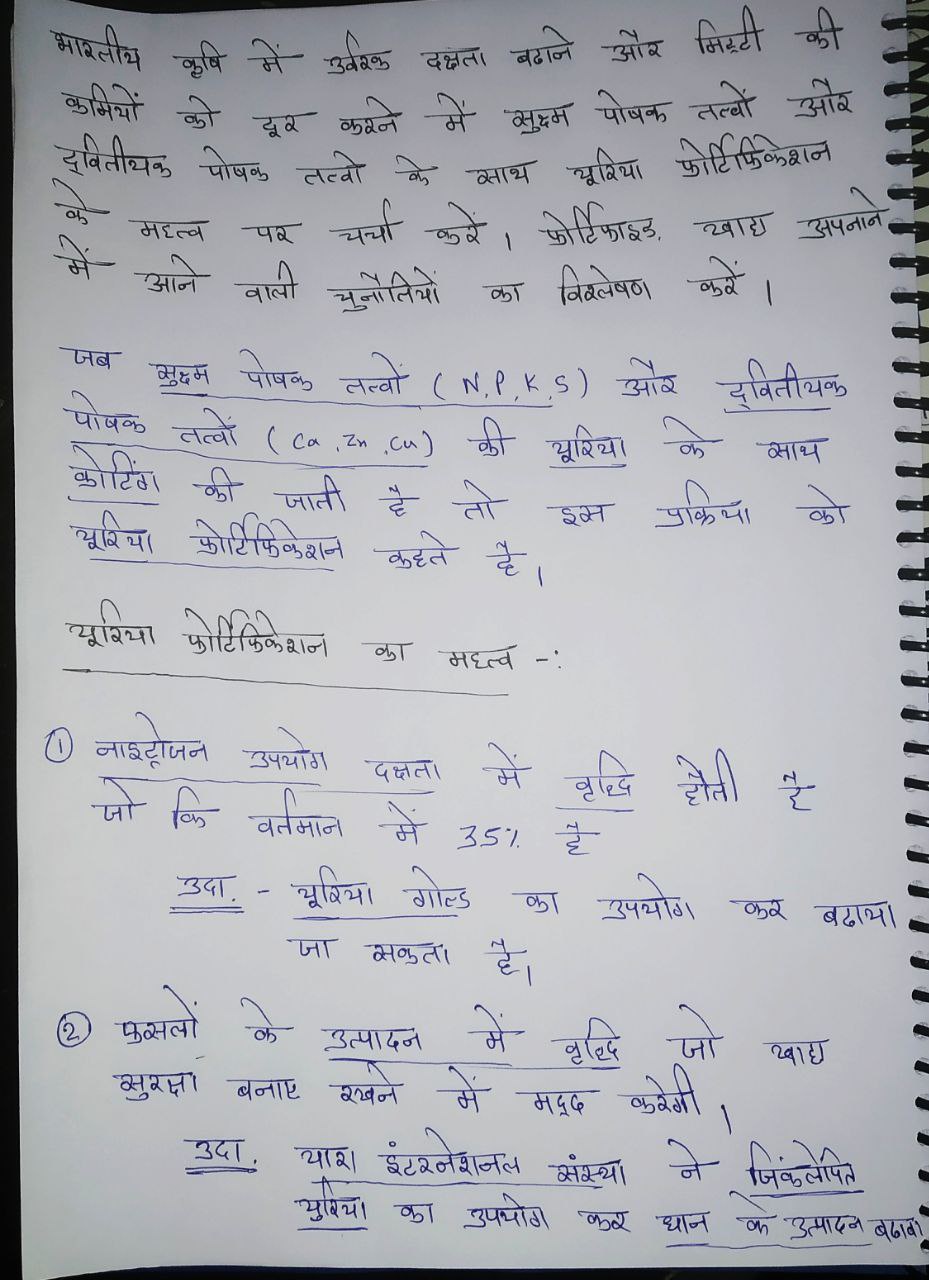 भारतीय कृषि में उर्वरक दक्षता बढाने और मिट्टी की
कमियों को दूर करने में सुक्ष्म पोषक तत्वों और
द्वितीयक पोषक तत्वो के साथ यूरिया फ़ोर्टिफिकेशन
के महत्व पर चर्चा करें। फ़ोर्टिफाइड खाद्य अपनाने
में आने वाली चुनौतियों का विश्लेषण करें।
जब सुक्ष्म पोषक तत्वों (N,P,K,S) और द्वितीयक
पोषक तत्वों (Ca,Zn,Cu) की यूरिया के साथ
कोटिंग की जाती है तो इस प्रक्रिया को
यूरिया फ़ोर्टिफिकेशन कहते है।
यूरिया फ़ोर्टिफिकेशन का महत्व -:
① नाइट्रोजन उपयोग दक्षता में वृद्धि होती है
जो कि वर्तमान में 35% है
उदा. - यूरिया गोल्ड का उपयोग कर बढाया
जा सकता है।
② फसलों के उत्पादन में वृद्धि जो खाद्य
सुरक्षा बनाए रखने में मद्द करेगी।
उदा. यारा इंटरनेशनल संस्था ने जिंकलेपित
युरिया का उपयोग कर धान के उत्पादन बढाया